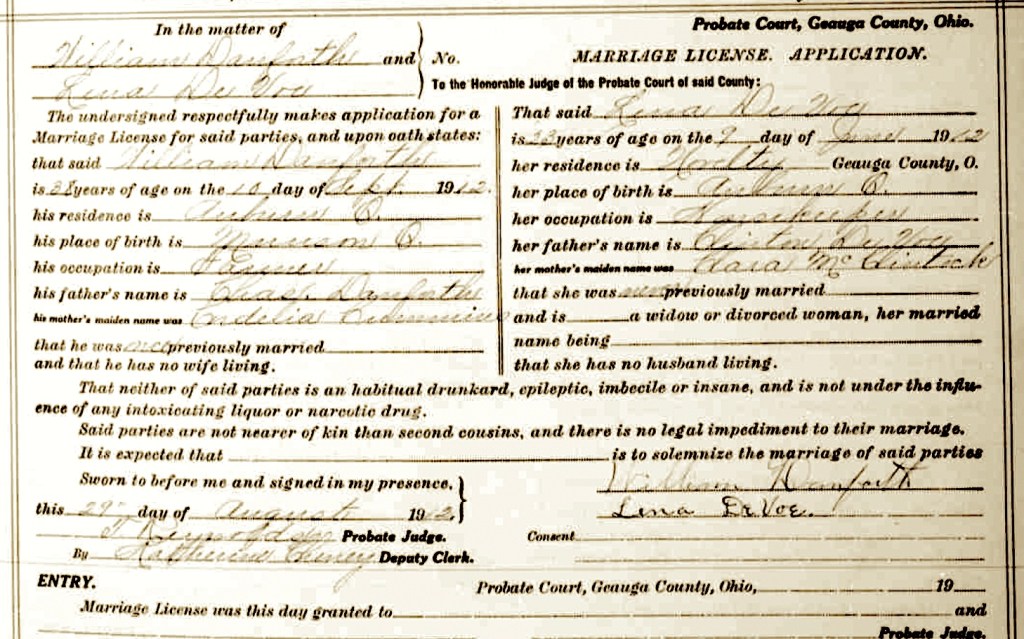 In the matter of
William Danforth and
Lena De Voe
Probate Court, Geauga County, Ohio.
No. MARRIAGE LICENSE. APPLICATION.
To the Honorable Judge of the Probate Court of said County:
The undersigned respectfully makes application for a
Marriage License for said parties, and upon oath states:
that said William Danforth
is 38 years of age on the 10 day of Sept. 1912.
his residence is Auburn O.
his place of birth is Munson O.
his occupation is Farmer
his father's name is Chas. Danforth
his mother's maiden name was Cordelia
that he was not previously married
and that he has no wife living.
That said Lena De Voe
is 33 years of age on the 9 day of June 1912
her residence is Novelty Geauga County, O.
her place of birth is Auburn O.
her occupation is Housekeeper
her father's name is Clinton De Voe
her mother's maiden name was Clara McClintock
that she was never previously married
and is a widow or divorced woman, her married
name being
that she has no husband living.
That neither of said parties is an habitual drunkard, epileptic, imbecile or insane, and is not under the influ-
ence of any intoxicating liquor or narcotic drug.
Said parties are not nearer of kin than second cousins, and there is no legal impediment to their marriage.
It is expected that is to solemnize the marriage of said parties
Sworn to before me and signed in my presence,
this 29 day of August 1912.
Probate Judge.
By Katherine Deputy Clerk.
William Danforth
Lena DeVoe.
Consent
ENTRY. Probate Court, Geauga County, Ohio, 19
Marriage License was this day granted to and
Probate Judge.